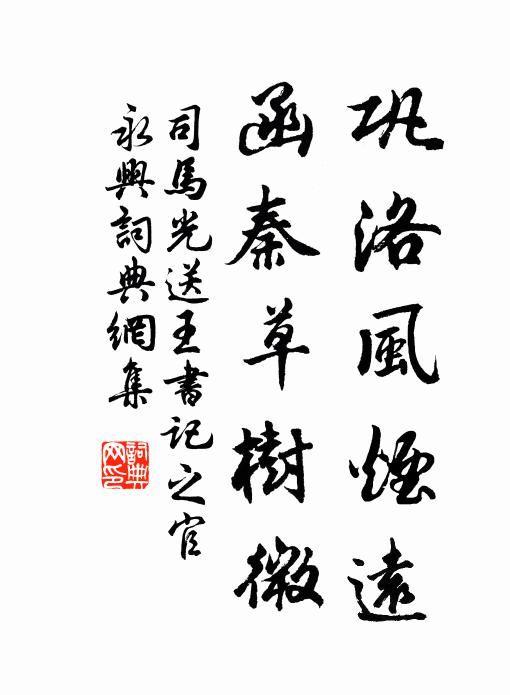 巩洛風煙遠
函秦草樹微
司馬光送王書記之官
永興詞典網集
詞典網印